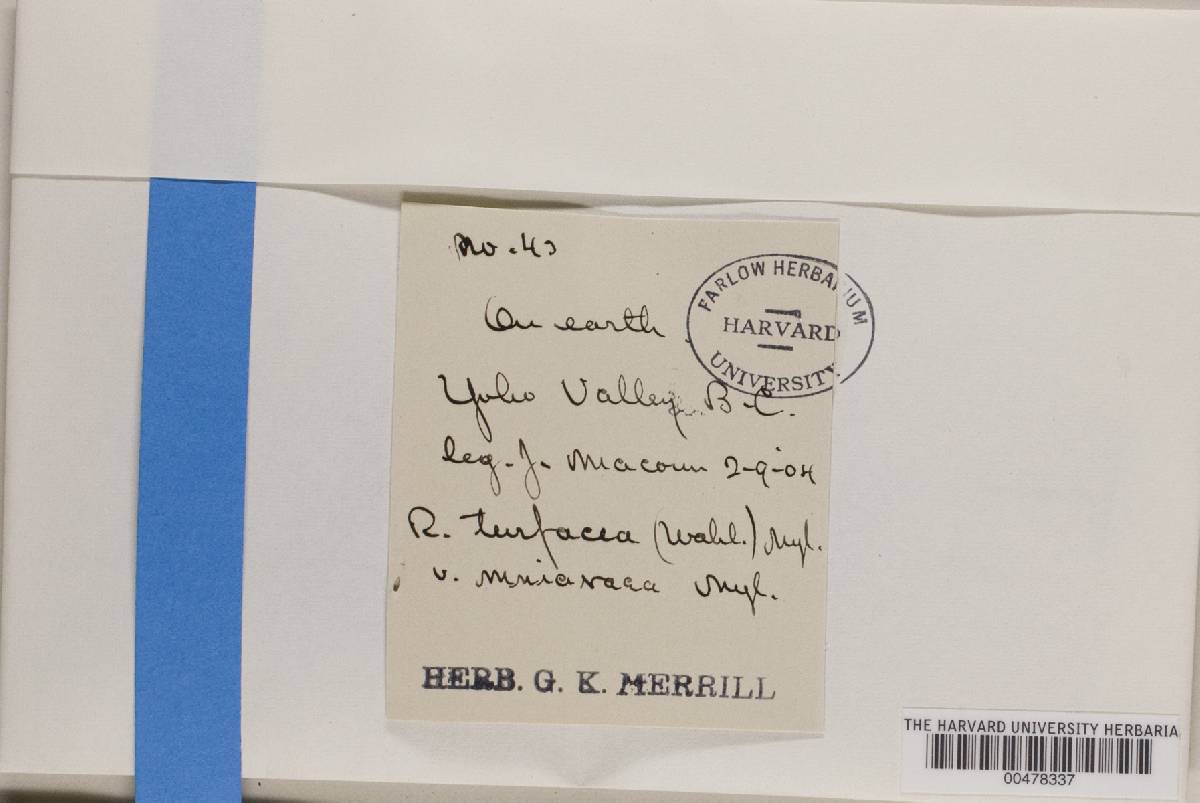 No. 43
On earth,
Yoho Valley, B.C.
leg. J. Macoun 2-9-04
R. turfacea (Wahl.) Nyl.
v. mniaraea Nyl.
HERB. G. K. MERRILL
FARLOW HERBARIUM
HARVARD
UNIVERSITY
THE HARVARD UNIVERSITY HERBARIA
00478337